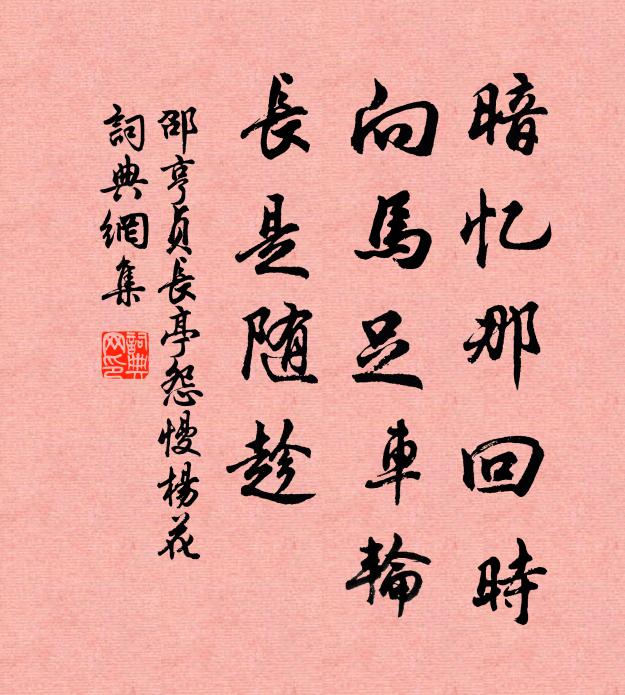 暗忆那回時
向馬足車輪
長是随趁
邵亨貞長亭怨慢楊花
詞典網集
詞典网印